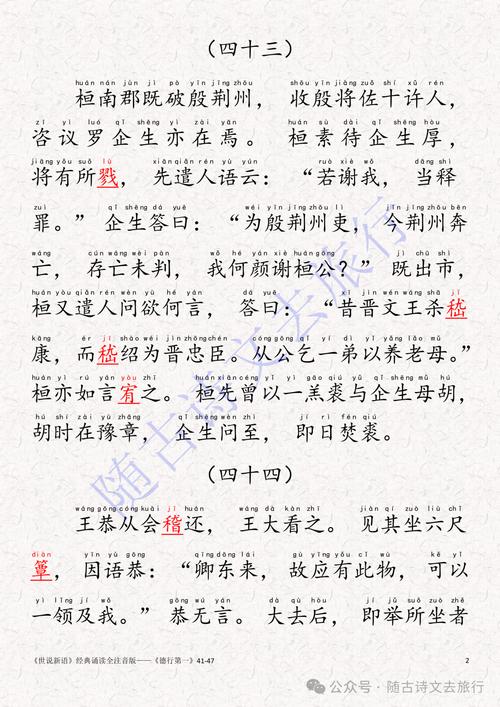 （四十三）
huán nán jùn jì pò yīn jīng zhōu shōu yīn jiāng zuǒ shí xǔ rén
桓南郡既破殷荆州，收殷将佐十许人，
zī yì luó qǐ shēng yì zài yān huán sù dài qǐ shēng hòu
咨议罗企生亦在焉。桓素待企生厚，
jiāng yǒu suǒ lù xiān qiǎn rén yù yún ruò xiè wǒ dāng shì
将有所戮，先遣人语云：“若谢我，当释
zuì qǐ shēng dá yuē wéi yīn jīng zhōu lì jīn jīng zhōu bēn
罪。”企生答曰：“为殷荆州吏，今荆州奔
wáng cún wáng wèi pàn wǒ hé yán xiè huán gōng jì chū shì
亡，存亡未判，我何颜谢桓公？”既出市，
huán yòu qiǎn rén wèn yù hé yán dá yuē xī jìn wén wáng shā jī
桓又遣人问欲何言，答曰：“昔晋文王杀嵇
kāng ér jī shào wéi jìn zhōng chén cóng gōng qǐ yī dì yǐ yǎng lǎo mǔ
康，而嵇绍为晋忠臣。从公乞一弟以养老母。”
huán yì rú yán yòu zhī huán xiān céng yǐ yī gāo qiú yǔ qǐ shēng mǔ hú
桓亦如言宥之。桓先曾以一羔裘与企生母胡，
hú shí zài yù zhāng qǐ shēng wèn zhì jí rì fén qiú
胡时在豫章，企生问至，即日焚裘。
（四十四）
wáng gōng cóng kuài jī huán wáng dà kàn zhī jiàn qí zuò liù chǐ
王恭从会稽还，王大看之。见其坐六尺
diàn yīn yù gōng qīng dōng lái gù yīng yǒu cǐ wù kě yǐ
簟，因语恭：“卿东来，故应有此物，可以
yī lǐng jí wǒ gōng wú yán dà qù hòu jí jǔ suǒ zuò zhě
一领及我。”恭无言。大去后，即举所坐者
随古诗文去旅行
《世说新语》经典诵读全注音版——《德行第一》41-47 2
公众号·随古诗文去旅行